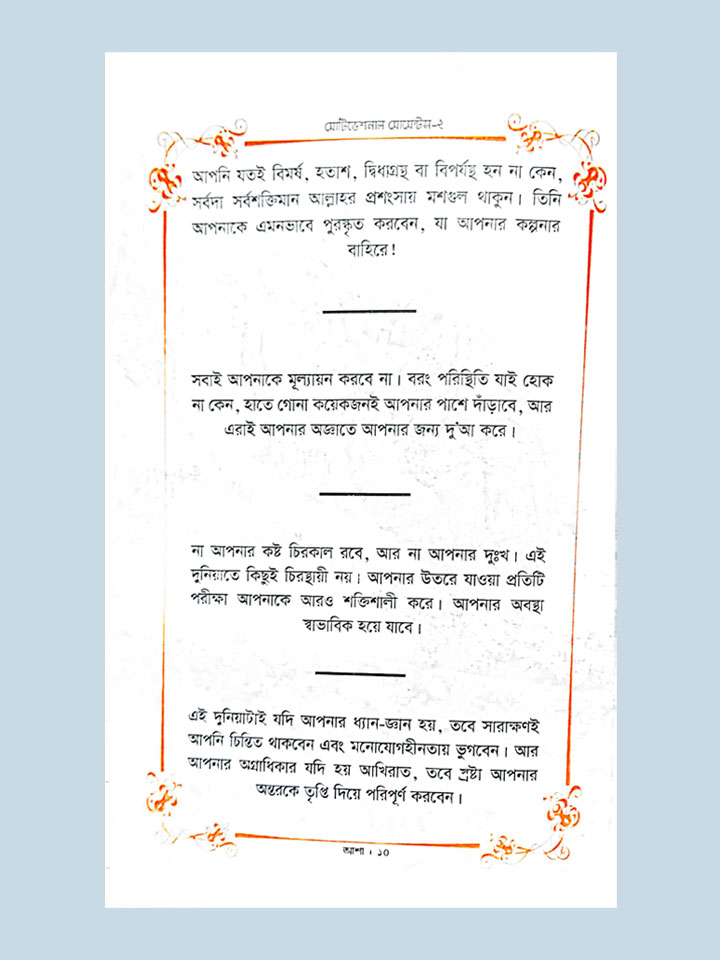 মোটিভেশনাল মোমেন্টস-২
আপনি যতই বিমর্ষ, হতাশ, দ্বিধাগ্রস্থ বা বিপর্যস্থ হন না কেন,
সর্বদা সর্বশক্তিমান আল্লাহর প্রশংসায় মশগুল থাকুন। তিনি
আপনাকে এমনভাবে পুরস্কৃত করবেন, যা আপনার কল্পনার
বাহিরে!
সবাই আপনাকে মূল্যায়ন করবে না। বরং পরিস্থিতি যাই হোক
না কেন, হাতে গোনা কয়েকজনই আপনার পাশে দাঁড়াবে, আর
এরাই আপনার অজ্ঞাতে আপনার জন্য দু'আ করে।
না আপনার কষ্ট চিরকাল রবে, আর না আপনার দুঃখ। এই
দুনিয়াতে কিছুই চিরস্থায়ী নয়। আপনার উতরে যাওয়া প্রতিটি
পরীক্ষা আপনাকে আরও শক্তিশালী করে। আপনার অবস্থা
স্বাভাবিক হয়ে যাবে।
এই দুনিয়াটাই যদি আপনার ধ্যান-জ্ঞান হয়, তবে সারাক্ষণই
আপনি চিন্তিত থাকবেন এবং মনোযোগহীনতায় ভুগবেন। আর
আপনার অগ্রাধিকার যদি হয় আখিরাত, তবে স্রষ্টা আপনার
অন্তরকে তৃপ্তি দিয়ে পরিপূর্ণ করবেন।
আশা । ১০